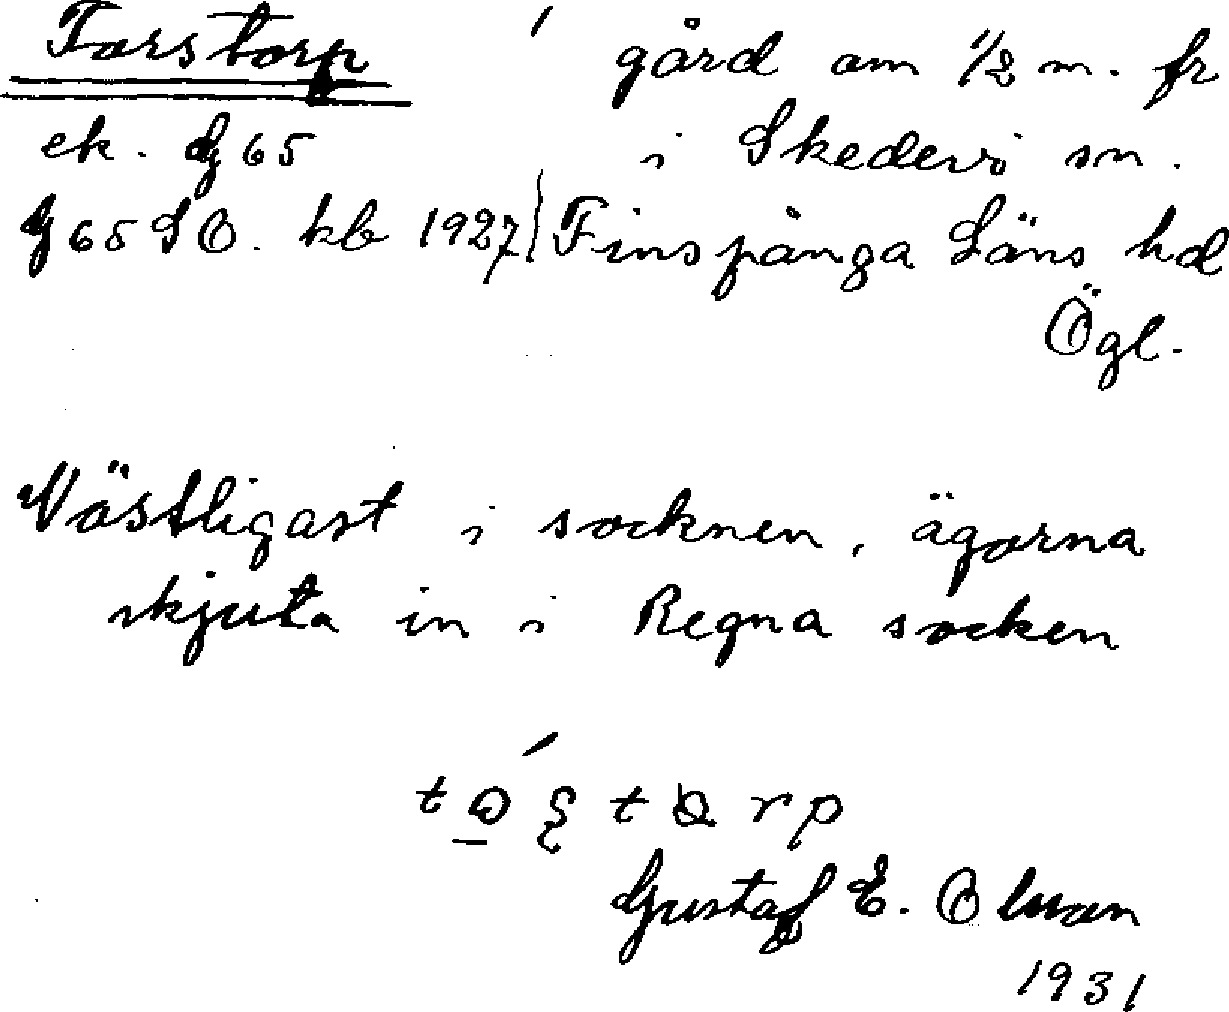 Torstorp ´ gård om 1/2 m. fr
ek. dg 65 i Skedevi sn.
J 65 SO. kb 1927 Finspånga Läns hd
Ögl.
Västligast i socknen, ägorna
skjuta in i Regna socken
Gustaf E. Olsson
1931